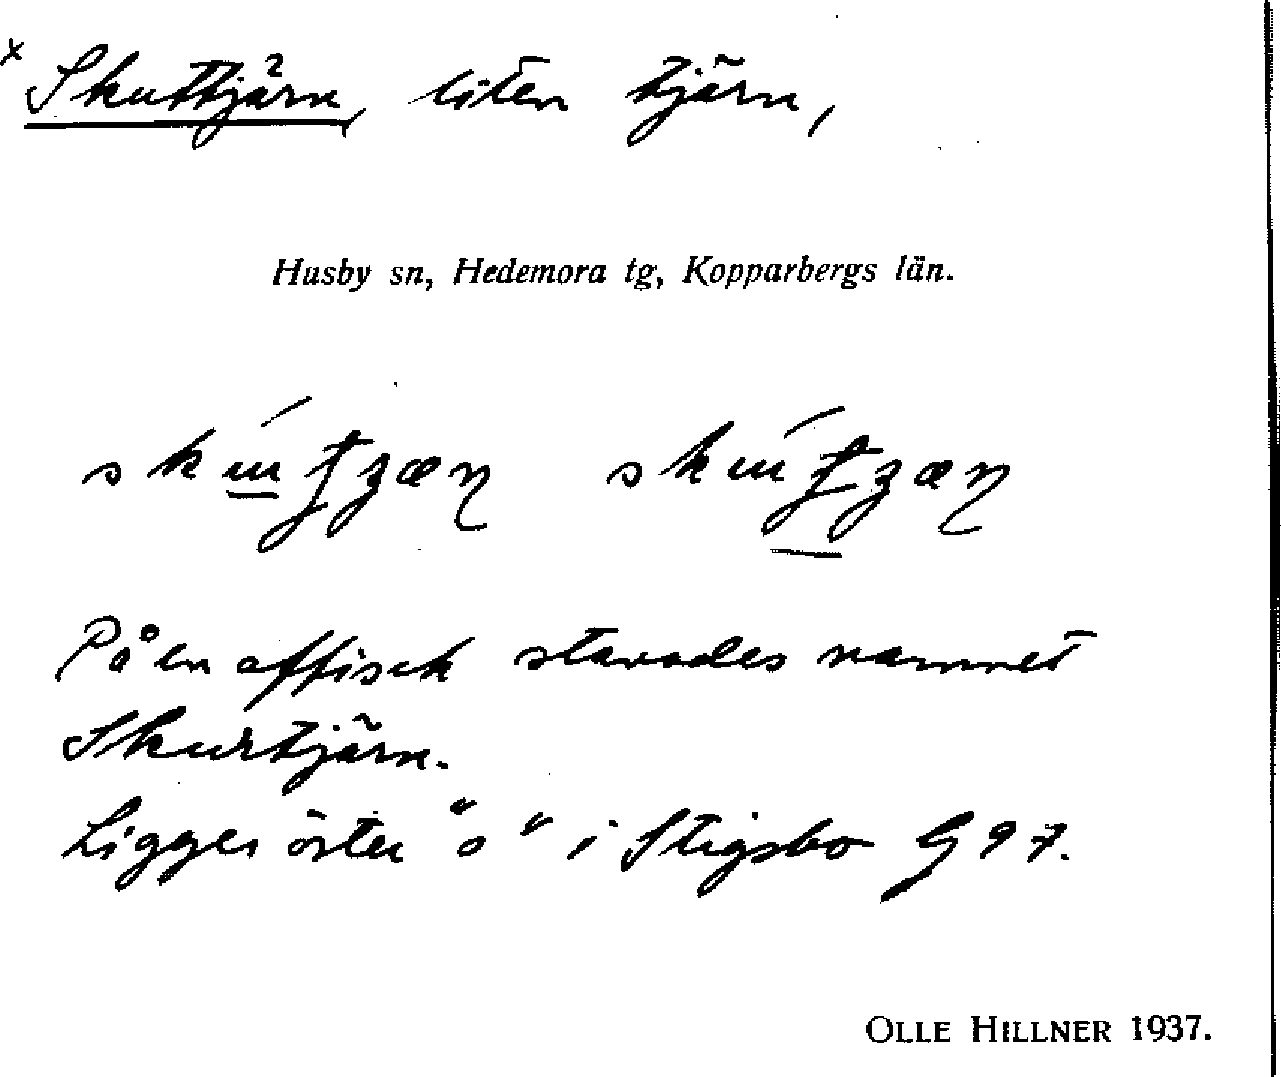 x Skuttjärn, liten tjärn,
Husby sn, Hedemora tg, Kopparbergs län.
På en affisch stavades namnet
Skurtjärn.
Ligger öster "o" i Stigsbo G 9 7.
OLLE HILLNER 1937.